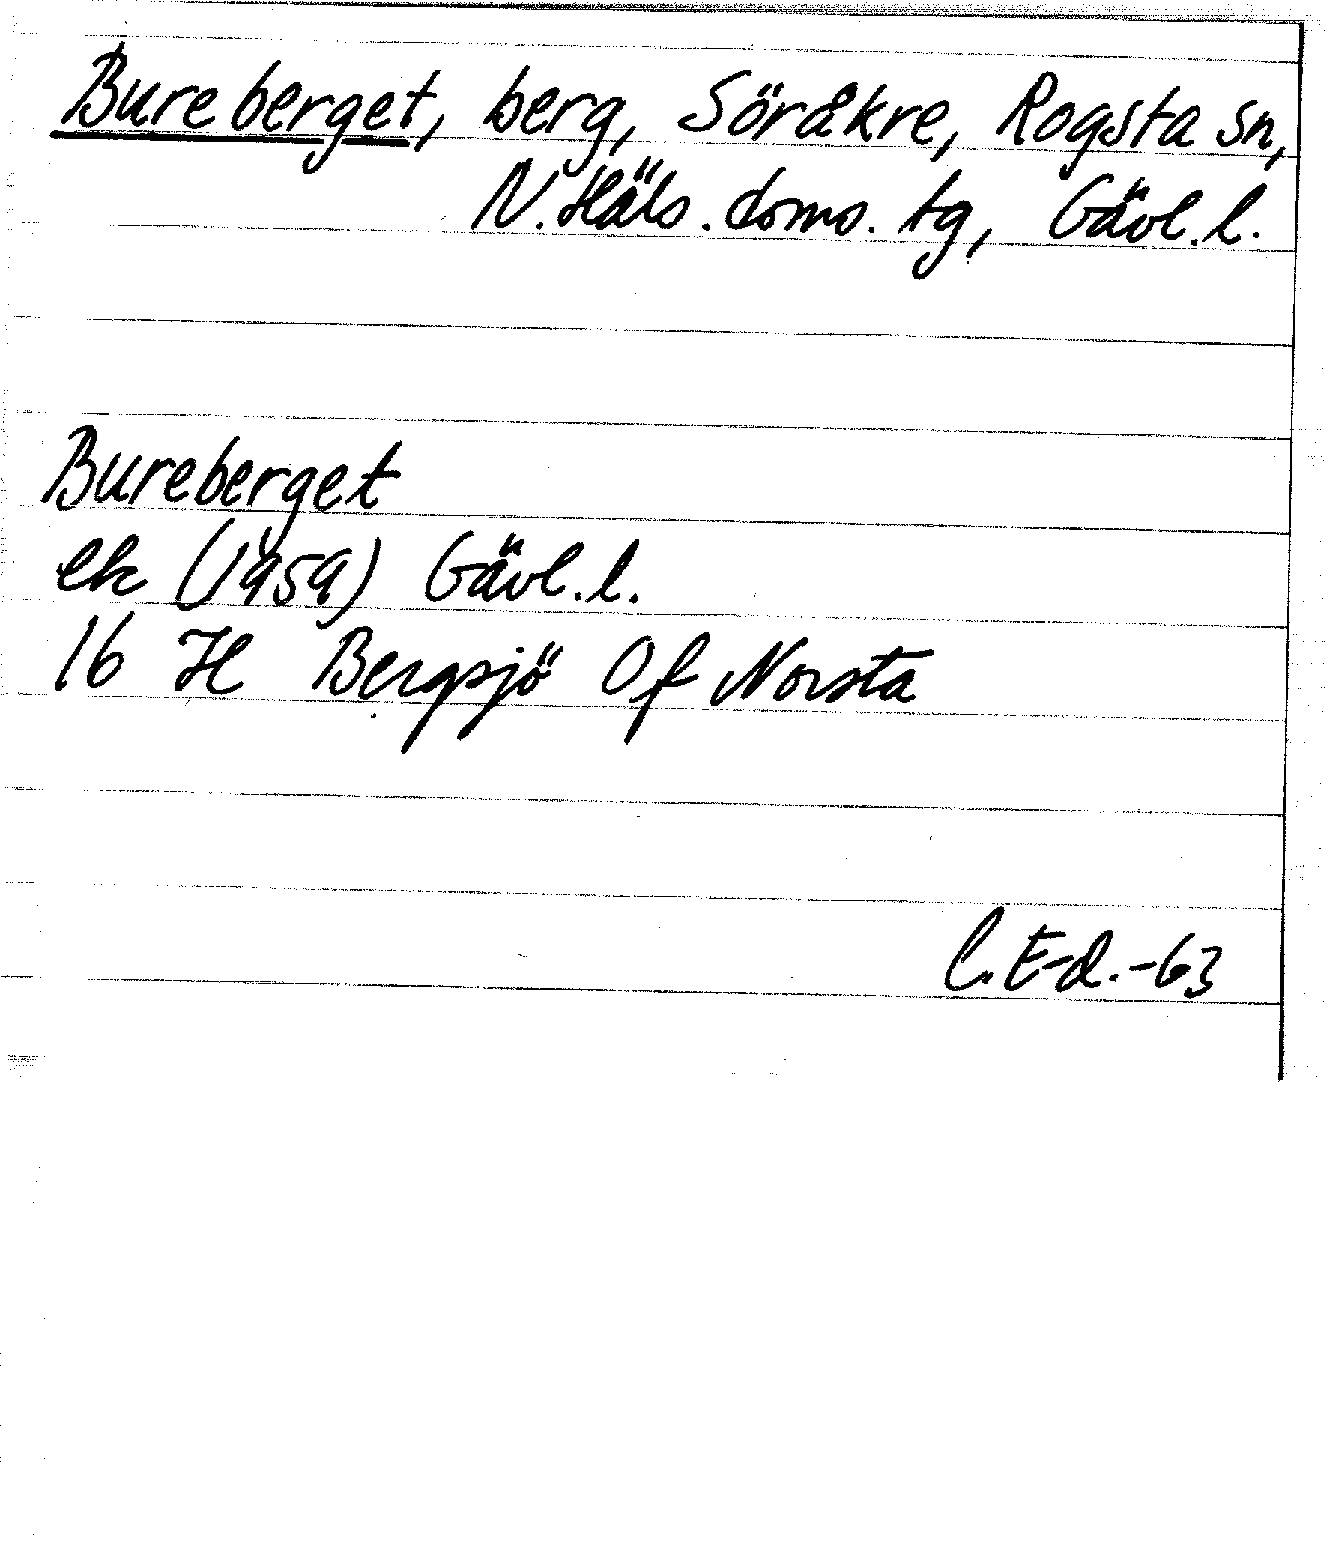 Bureberget, berg, Söråkre, Rogsta sn,
N. Häls. doms. tg, Gävl. l.
Bureberget
ek (1959) Gävl. l.
16 H Bergsjö Of Norsta
C. E-d. -63